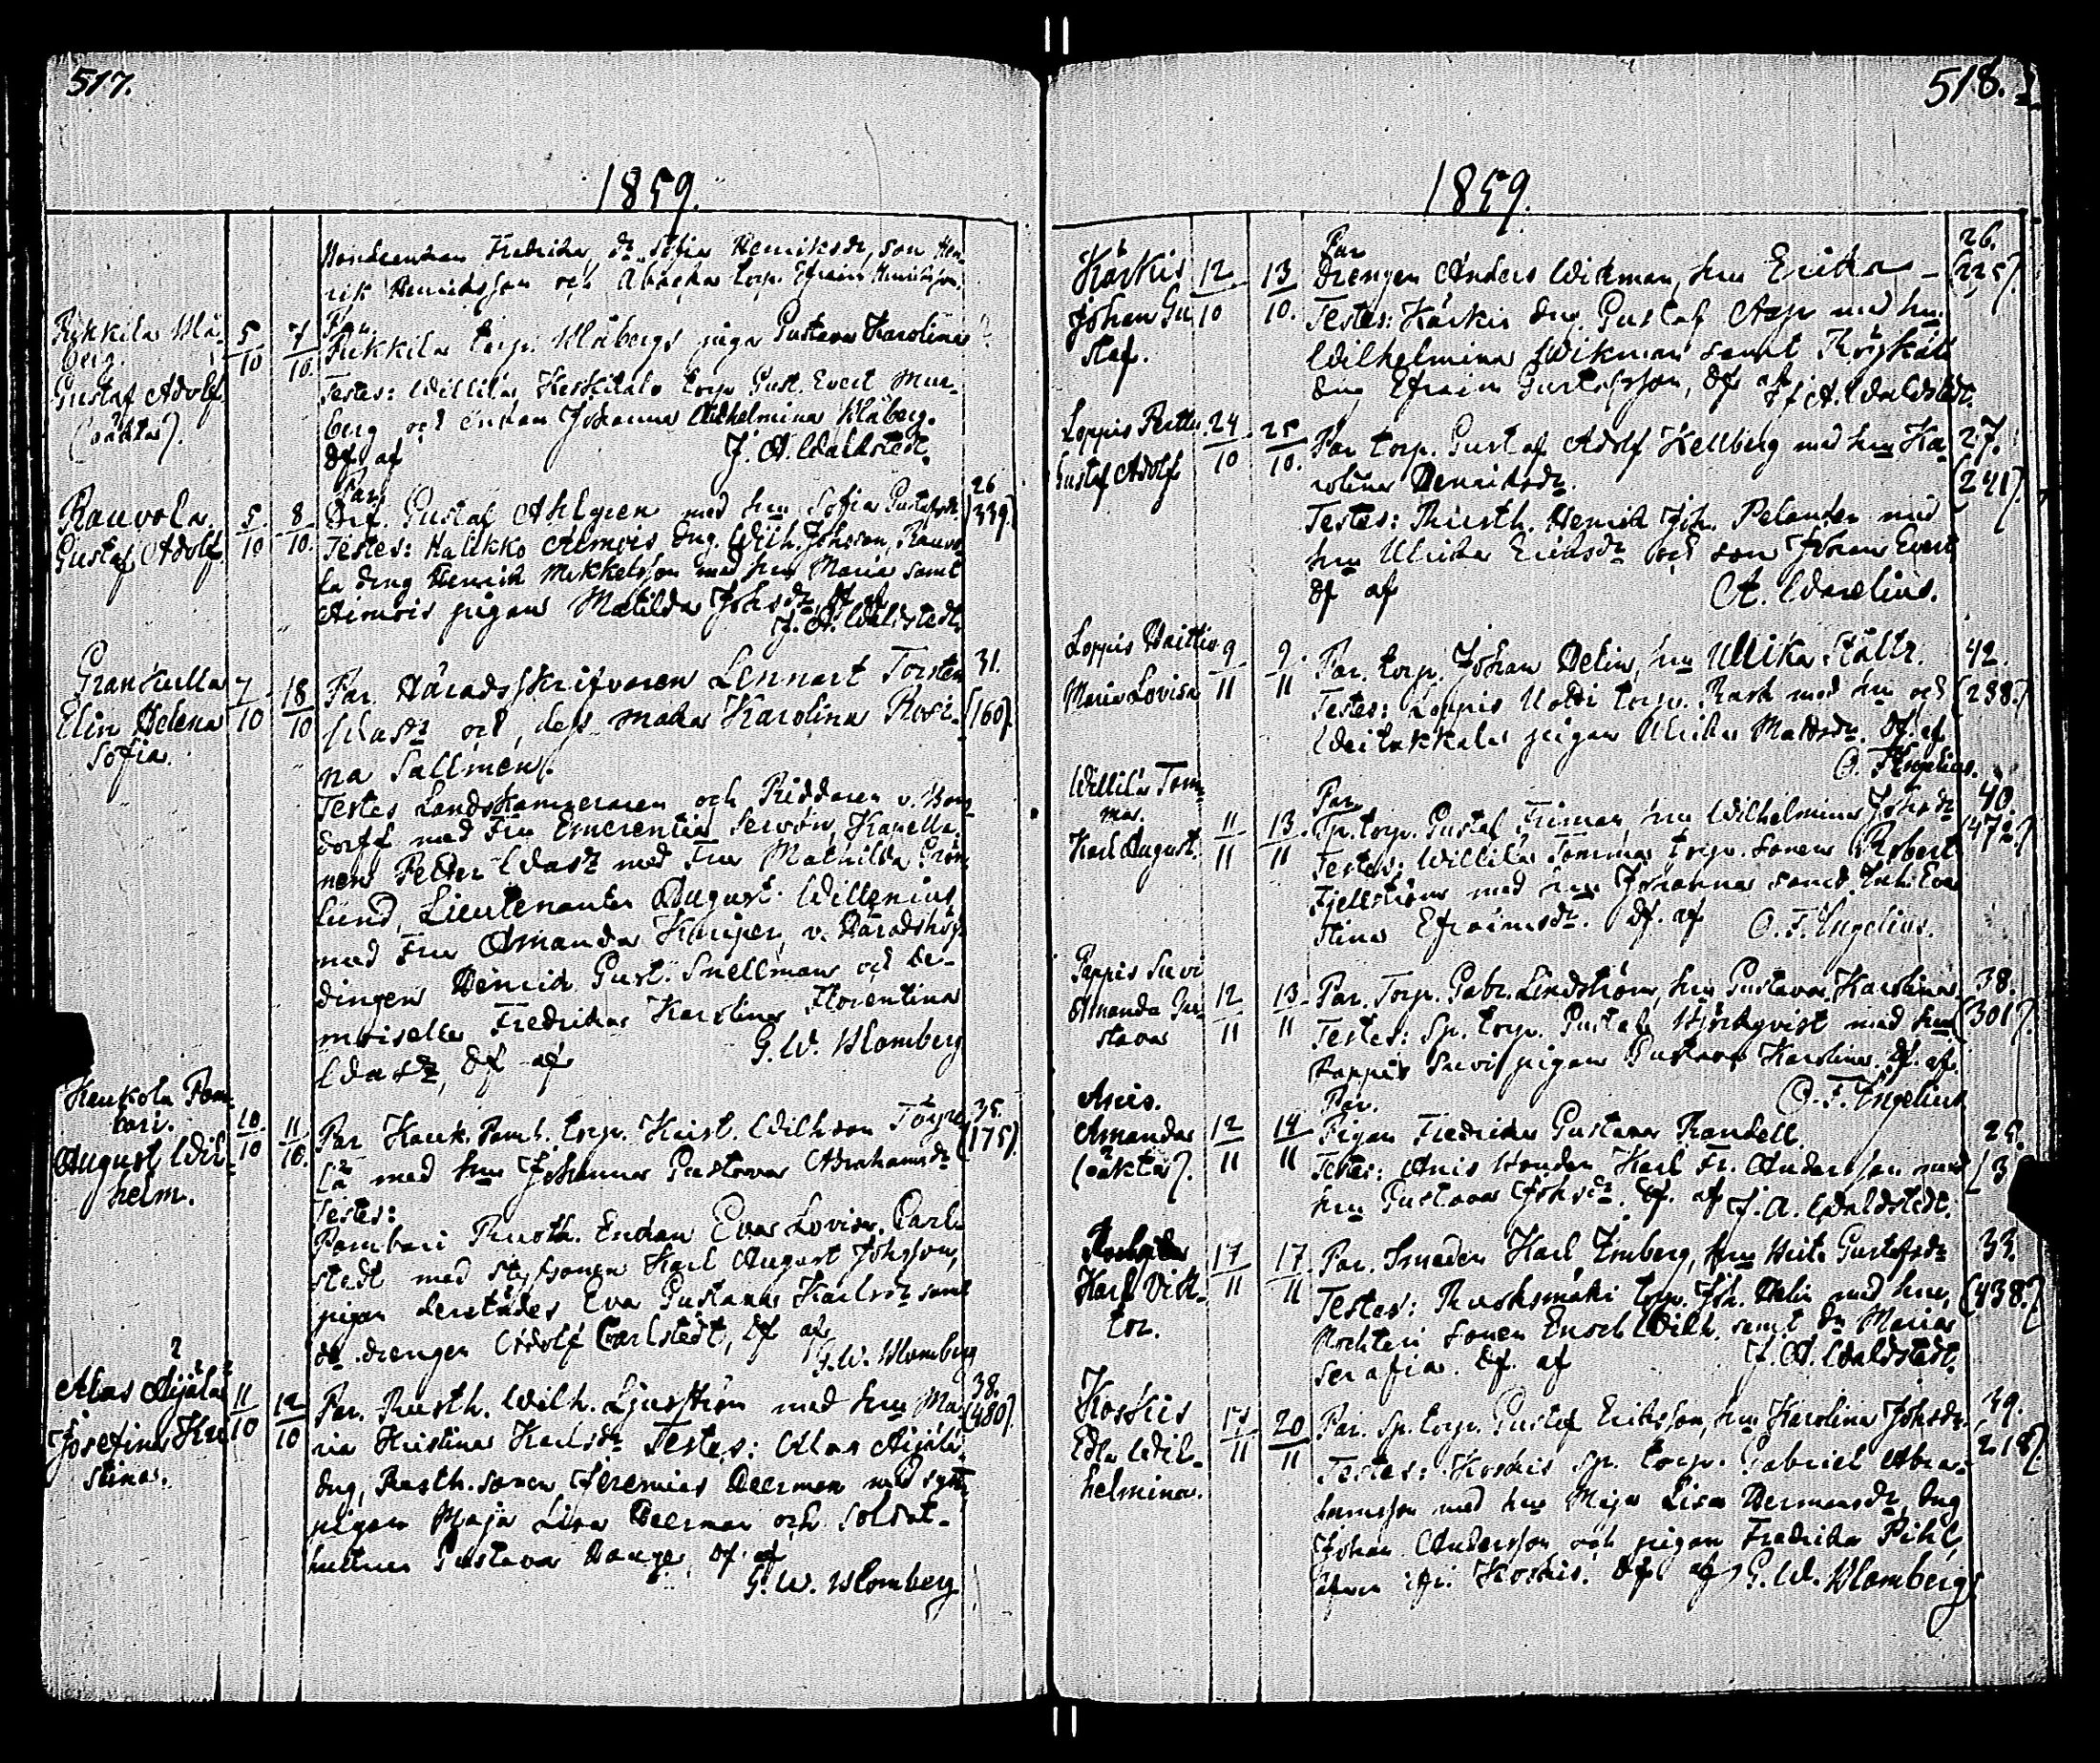 517.
1859.
Fredrika, dr. Sofia Henriksdr, son Hen-
rik Henriksson och torp. Efraim Henriksson.
Rekkila Blå-
berg.
Gustaf Adolf
(oäkta).
5/10 7/10.
Par.
Rekkila torp. Blåbergs piga Gustava Karolina
Testes: Willilä, torp. Gust. Evert Mur-
berg och enkan Johanna Wilhelmina Blåberg.
df af J. A. Waldstedt.
Rauvola.
Gustaf Adolf.
5/10 8/10.
26
(339).
Par.
Gustaf Ahlgren med hu Sofia Gustafsdr
Testes: Halikko drg. Wilh. Johsson, Rauvo-
la dreng Henrik Mikkelsson med hu Maria samt
pigan Matilda Johsdr, df af
J. A. Waldstedt.
Grankulla
Elin Helena
Sofia.
7/10 18/10
31.
(160).
Par. Häradsskrifvaren Lennart Torsten
och dess maka Karolina Rosi-
na Sallmén.
Testes Landskamreraren och Riddaren v. Bon-
dorff med Fru Emerentia Servön, Kapella-
nen Petter med Fru Mathilda Grön-
lund, Lieutenanten August Willenius
med Fru Amanda v. Häradshöf-
dingen Henrik Gust. Snellman och De-
moiselle Fredrika Karolina Florentina
df af G. W. Blomberg
Kaukola Pam-
bari.
August Wil-
helm.
10/10 11/10.
35.
(175).
Par Kauk. Pamb. torp. Krist. Wilhsson
med hu Johanna Gustava Abrahamsdr
Testes:
Pambari Rusth. Enkan Eva Lovisa Carl-
stedt med styfsonen Karl August Johsson,
pigan Eva Gustava Karlsdr samt
drengen Adolf Carlstedt, df af
G. W. Blomberg
Alas Äijälä
Josefina Kri-
stina.
11/10 12/10
38.
(480).
Par. Rusth. Wilh. Ljusström med hu Ma-
ria Kristina Karlsdr Testes: Alas Äijälä
drg, Rusth. sonen Jeremias Heerman med syst.
pigan Maja Lisa Heerman och Soldat-
Gustava Hauge, df af
G. W. Blomberg
518.
1859.
Kärkis
Johan Gu-
staf.
12/10 13/10.
26.
(225).
Par
Drengen Anders Wikman, hu Erika
Testes: Kärkis drg Gustaf med hu
Wilhelmina Wikman samt
drg Efraim Gustafsson, df af
J. A. Waldstedt.
Loppis Perttu
Gustaf Adolf
24/10 25/10.
27.
(241).
Par torp. Gustaf Adolf Hellberg med hu Ka-
rolina Henriksdr.
Testes: Rusth. Henrik Joh. Pelander med
hu Ulrika Eriksdr och son Johan Evert
df af A. Warelius.
Loppis
Maria Lovisa
9/11 9/11
42.
(288).
Par. torp. Johan Helin, hu Ullika
Testes: Loppis torp. Rask med hu och
pigan Ulrika Mattsdr. df. af
O. F. Engelius.
Willilä Tom-
ma.
Karl August.
11/11 13/11
40.
(472).
Par
Sp. torp. Gustaf Friman, hu Wilhelmina Johsdr
Testes: Willilä Tomma torp. sonen Robert
Fjellström med hu Johanna samt Eva
Stina Efraimsdr. df. af O. F. Engelius.
Pappis Suvi
Amanda Gu-
stava
12/11 13/11
38.
(301).
Par. Torp. Gabr. Lindström, hu Gustava Karolina
Testes: Sp. torp. Gustaf Björkqvist med hu
Pappis Suvi pigan Gustava Karolina df. af.
O. F. Engelius
Anis.
Amanda
(oäkta).
12/11 14/11
25.
Par.
Pigan Fredrika Gustava Randell.
Testes: Anis bonden Karl Fr. Andersson med
hu Gustava Johsdr. df. af J. A. Waldstedt.
Karl Vik-
tor.
17/11 17/11
33.
(438.)
Par. Smeden Karl Imberg, hu Gustafsdr
Testes: Ruohsmäki torp. Joh. Helin med hu,
sonen Enoch Wilh. samt dr Maria
Serafia. df. af J. A. Waldstedt.
Koskis
Edla Wil-
helmina.
17/11 20/11
39.
218).
Par. Sp. torp. Gustaf Eriksson, hu Karolina Johsdr.
Testes: Koskis Sp. torp. Gabriel Abra-
hamsson med hu Maja Lisa Hermansdr, drg
Johan Andersson och pigan Fredrika Pihl,
Koskis. df af G. W. Blomberg